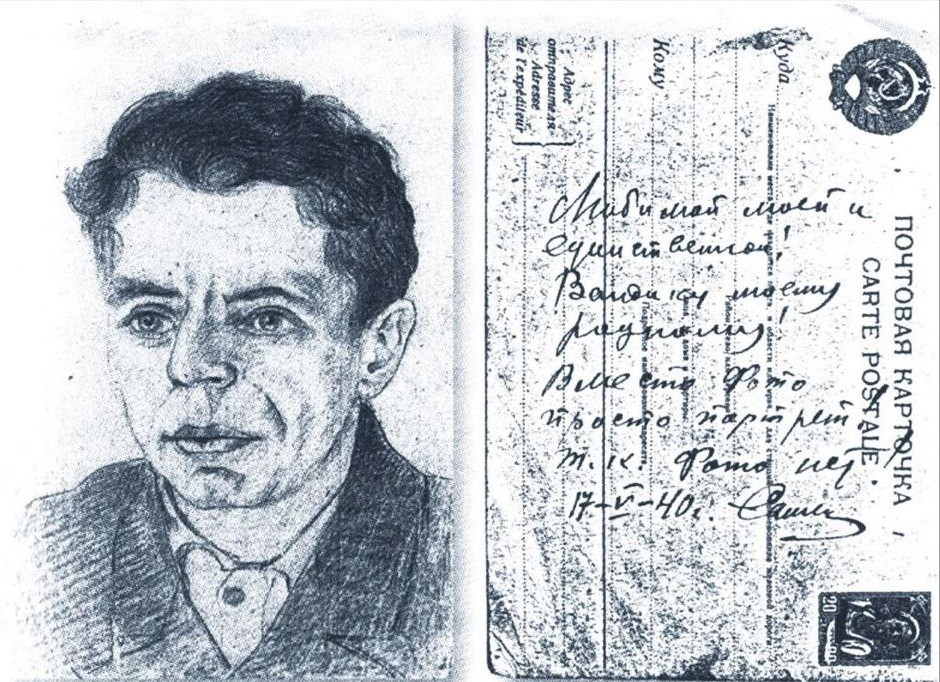 ПОЧТОВАЯ КАРТОЧКА
CARTE POSTALE
Куда
Кому
Адрес
отправителя
Adresse
de l'expéditeur
Любимой моей и
единственной!
моему
родному!
Вместо фото
просто портрет
т.к. фото нет
17-V-40г. Саша
20